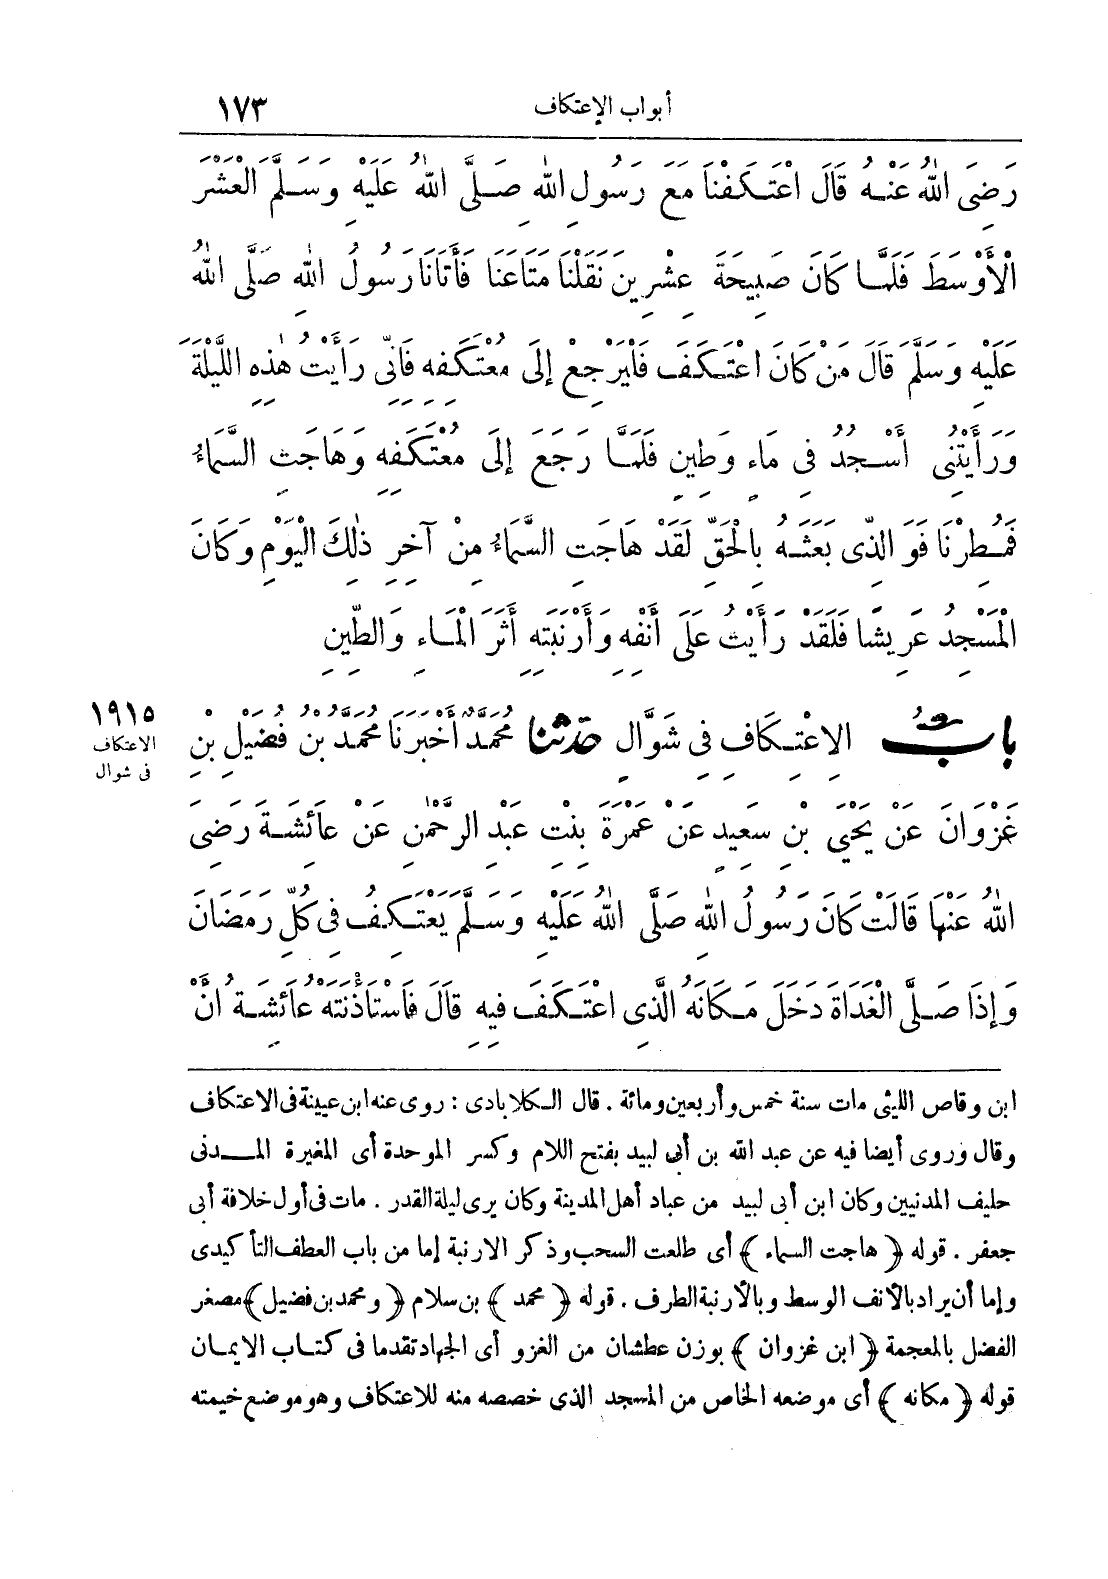 أبواب الإعتكاف ١٧٣
رَضِىَ اللهُ عَنْهُ قَالَ اعْتَكَفْنَا مَعَ رَسُولِ اللهِ صَلَّى اللهُ عَلَيْهِ وَسَلَّمَ الْعَشْرَ
الْأَوْسَطَ فَلَمَّا كَانَ صَبِيحَةَ عِشْرِينَ نَقَلْنَا مَتَاعَنَا فَأَتَانَا رَسُولُ اللهِ صَلَّى اللهُ
عَلَيْهِ وَسَلَّمَ قَالَ مَنْ كَانَ اعْتَكَفَ فَلْيَرْجِعْ إِلَى مُعْتَكَفِهِ فَإِنِّى رَأَيْتُ هٰذِهِ اللَّيْلَةَ
وَرَأَيْتُنِى أَسْجُدُ فِى مَاءٍ وَطِينٍ فَلَمَّا رَجَعَ إِلَى مُعْتَكَفِهِ وَهَاجَتِ السَّمَاءُ
فَمُطِرْنَا فَوَ الَّذِى بَعَثَهُ بِالْحَقِّ لَقَدْ هَاجَتِ السَّمَاءُ مِنْ آخِرِ ذٰلِكَ الْيَوْمِ وَكَانَ
الْمَسْجِدُ عَرِيشًا فَلَقَدْ رَأَيْتُ عَلَى أَنْفِهِ وَأَرْنَبَتِهِ أَثَرَ الْمَاءِ وَالطِّينِ
بابُ الِاعْتِكَافِ فِى شَوَّالٍ حدثنا مُحَمَّدٌ أَخْبَرَنَا مُحَمَّدُ بْنُ فُضَيْلِ بْنِ
١٩١٥
الاعتكاف
فى شوال
غَزْوَانَ عَنْ يَحْيَى بْنِ سَعِيدٍ عَنْ عَمْرَةَ بِنْتِ عَبْدِ الرَّحْمٰنِ عَنْ عَائِشَةَ رَضِىَ
اللهُ عَنْهَا قَالَتْ كَانَ رَسُولُ اللهِ صَلَّى اللهُ عَلَيْهِ وَسَلَّمَ يَعْتَكِفُ فِى كُلِّ رَمَضَانَ
وَإِذَا صَلَّى الْغَدَاةَ دَخَلَ مَكَانَهُ الَّذِى اعْتَكَفَ فِيهِ قَالَ فَاسْتَأْذَنَتْهُ عَائِشَةُ أَنْ
ابن وقاص الليثى مات سنة خمس وأربعين ومائة . قال الكلابادى : روى عنه ابن عيينة فى الاعتكاف
وقال وروى أيضا فيه عن عبد الله بن أبى لبيد بفتح اللام وكسر الموحدة أى المغيرة المدنى
حليف المدنيين وكان ابن أبى لبيد من عباد أهل المدينة وكان يرى ليلة القدر . مات فى أول خلافة أبى
جعفر . قوله ﴿ هاجت السماء ﴾ أى طلعت السحب وذكر الارنبة إما من باب العطف التأكيدى
وإما أن يراد بالأنف الوسط وبالأرنبة الطرف . قوله ﴿ محمد ﴾ بن سلام ﴿ ومحمد بن فضيل ﴾ مصغر
الفضل بالمعجمة ﴿ ابن غزوان ﴾ بوزن عطشان من الغزو أى الجهاد تقدما فى كتاب الايمان
قوله ﴿ مكانه ﴾ أى موضعه الخاص من المسجد الذى خصصه منه للاعتكاف وهو موضع خيمته